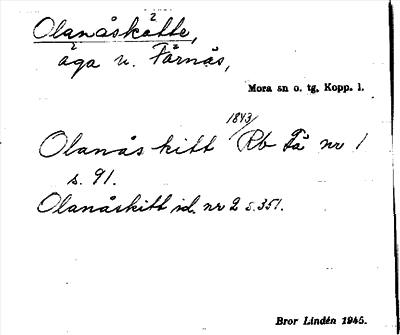 Olanåskätte,
äga n. Färnäs,
Mora sn o. tg, Kopp. l.
Olanås kitt 1843/ Rb Få nr 1
s. 91.
Olanåskitt id. nr 2 s. 351.
Bror Lindén 1945.